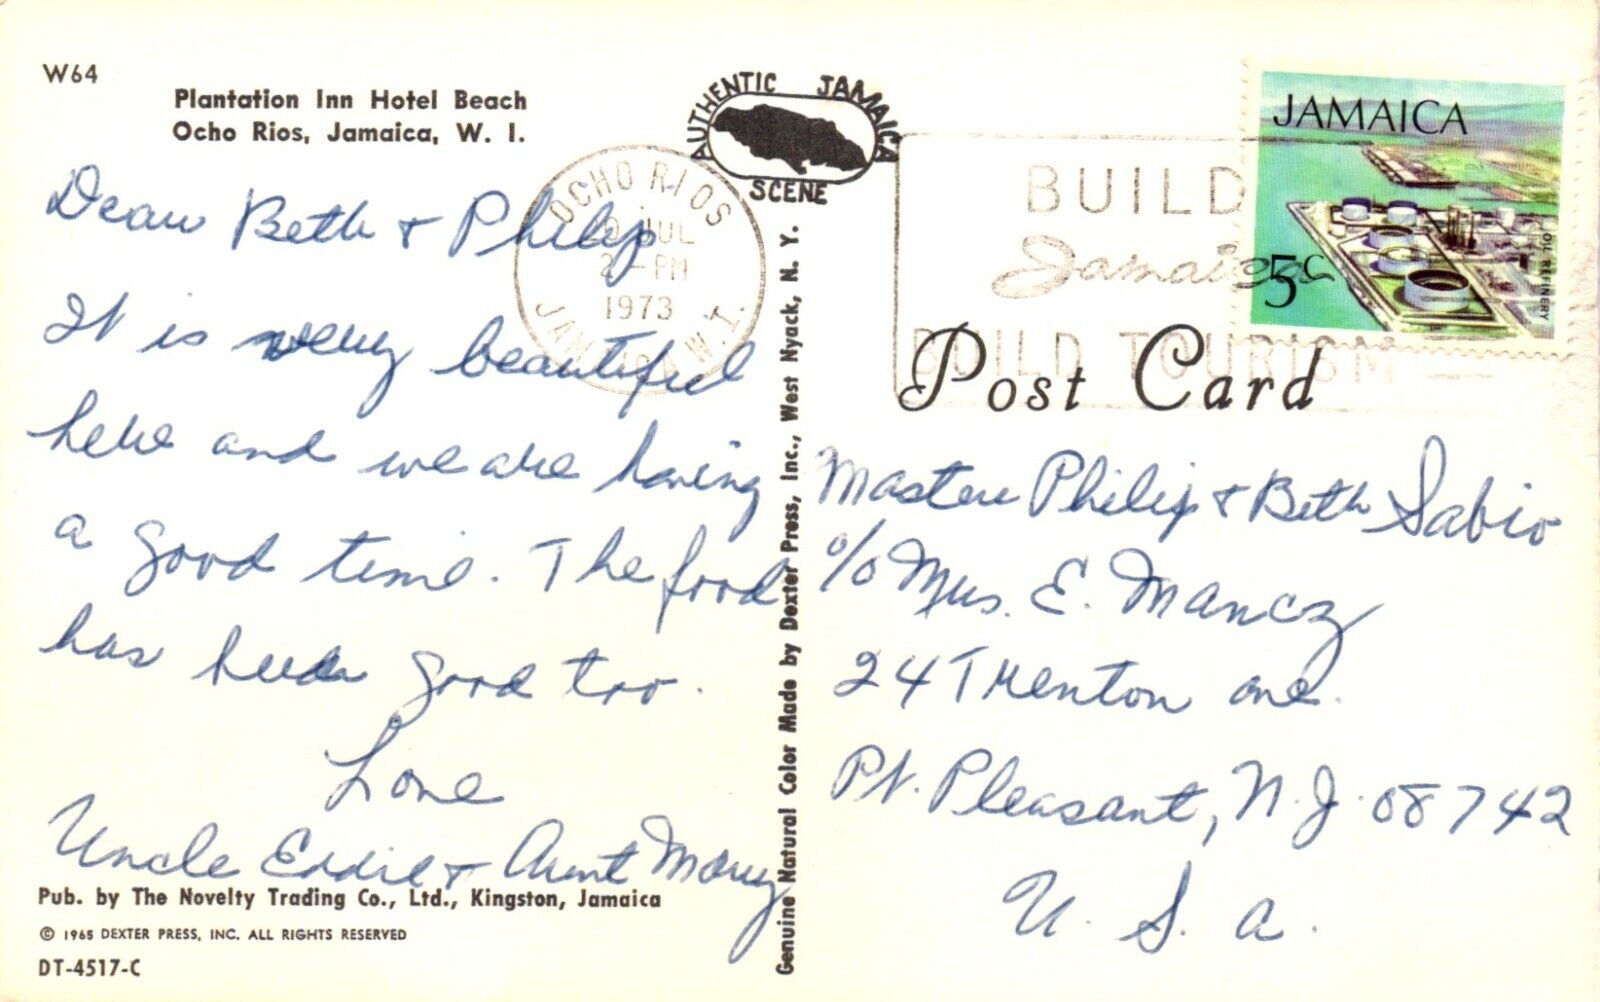 W64
Plantation Inn Hotel Beach
Ocho Rios, Jamaica, W. I.
Dear Beth & Philip
It is very beautiful
here and we are having
a good time. The food
has been good too.
Love
Uncle Eddie & Aunt Mary
Pub. by The Novelty Trading Co., Ltd., Kingston, Jamaica
© 1965 DEXTER PRESS, INC. ALL RIGHTS RESERVED
DT-4517-C
Genuine Natural Color Made by Dexter Press, Inc., West Nyack, N. Y.
AUTHENTIC JAMAICA
SCENE
OCHO RIOS
JUL
2-PM
1973
JAMAICA W.I.
BUILD
Jamaica
BUILD TOURISM
JAMAICA
5c
OIL REFINERY
Post Card
Master Philip & Beth Sabio
c/o Mrs. E. Mancz
24 Trenton ave.
Pt. Pleasant, N.J. 08742
U.S.A.